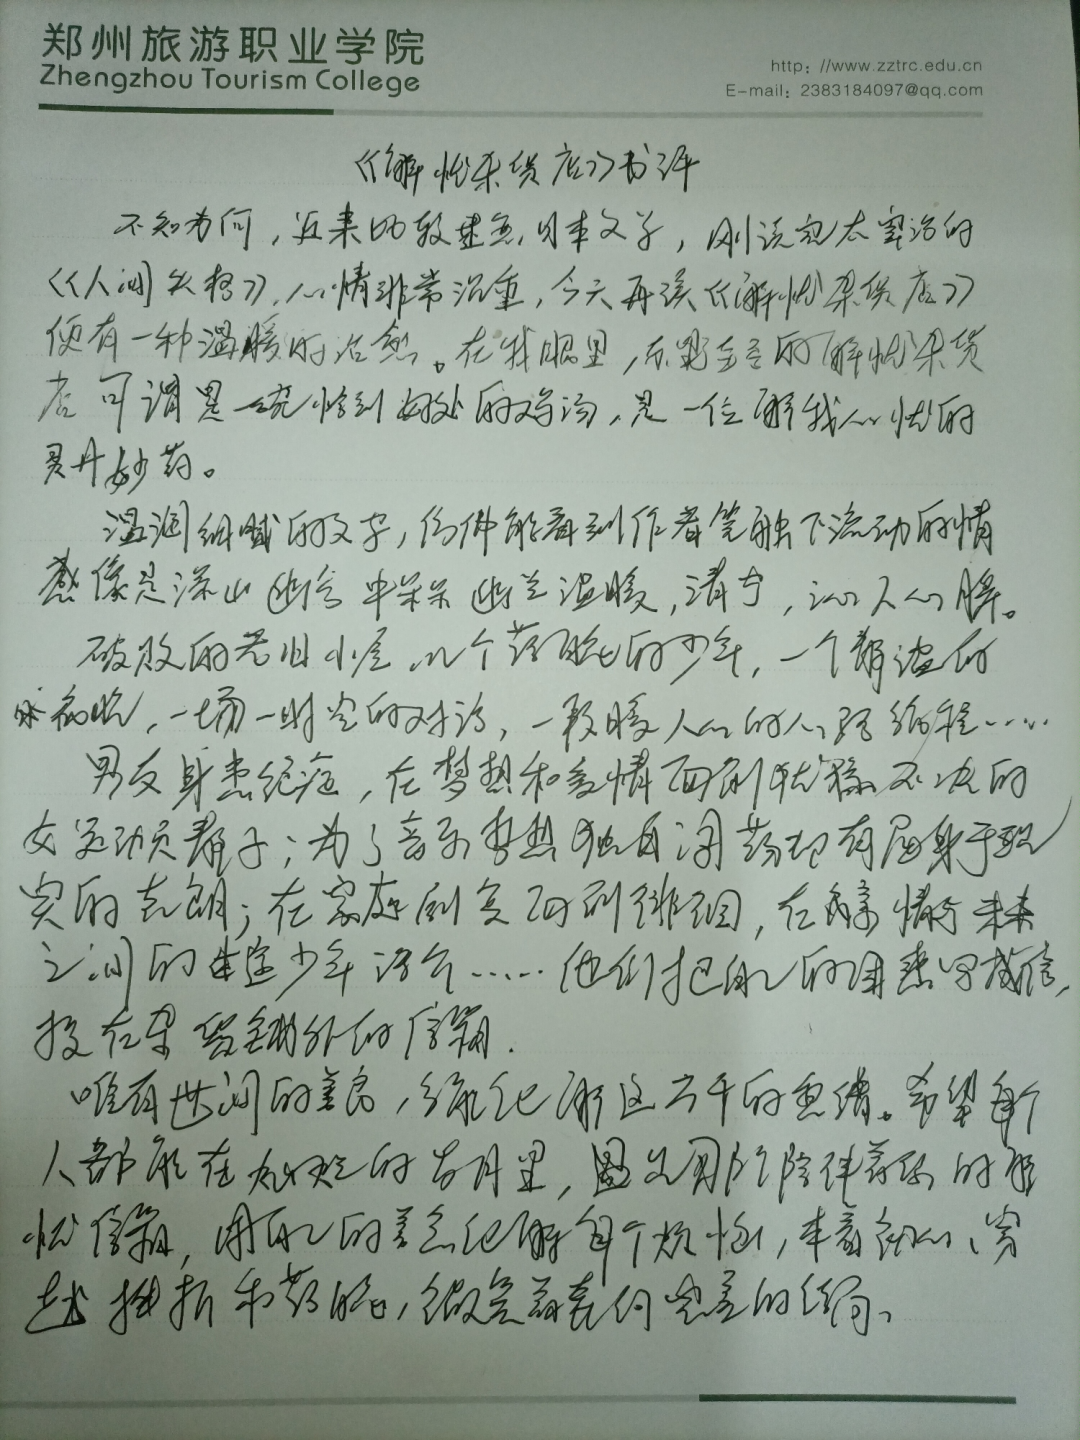 郑州旅游职业学院
Zhengzhou Tourism College
http: //www.zztrc.edu.cn
E-mail: 2383184097@qq.com
《解忧杂货店》书评
不知为何，近来的较迷恋日本文学，刚读完太宰治的
《人间失格》，心情非常沉重，今天再读《解忧杂货店》
便有一种温暖的治愈。在我眼里，东野圭吾的《解忧杂货
店可谓是一碗恰到好处的鸡汤，是一位解我心忧的
灵丹妙药。
温润细腻的文字，仿佛能看到作者笔触下流动的情
感像是深山幽谷中朵朵幽兰温暖，清宁，沁人心脾。
破败的老旧小屋，几个落魄的少年，一个静谧的
夜晚，一场时空的对话，一段暖人心的心路历程……
男友身患绝症，在梦想和爱情面前犹豫不决的
女运动员静子；为了音乐梦想独自闯荡却有屈身于现
实的克郎；在家庭剧变面前徘徊，在亲情与未来
之间的迷途少年浩介……他们把自己的困惑写成信，
投在杂货铺外的信箱.
唯有世间的善良，能化解这六千的愁绪。希望每个
人都能在灿烂的岁月里，
忧信箱，用自己的善意化解每个烦恼，本着初心、穿
越挫折和落魄，微笑着走向完美的结局、